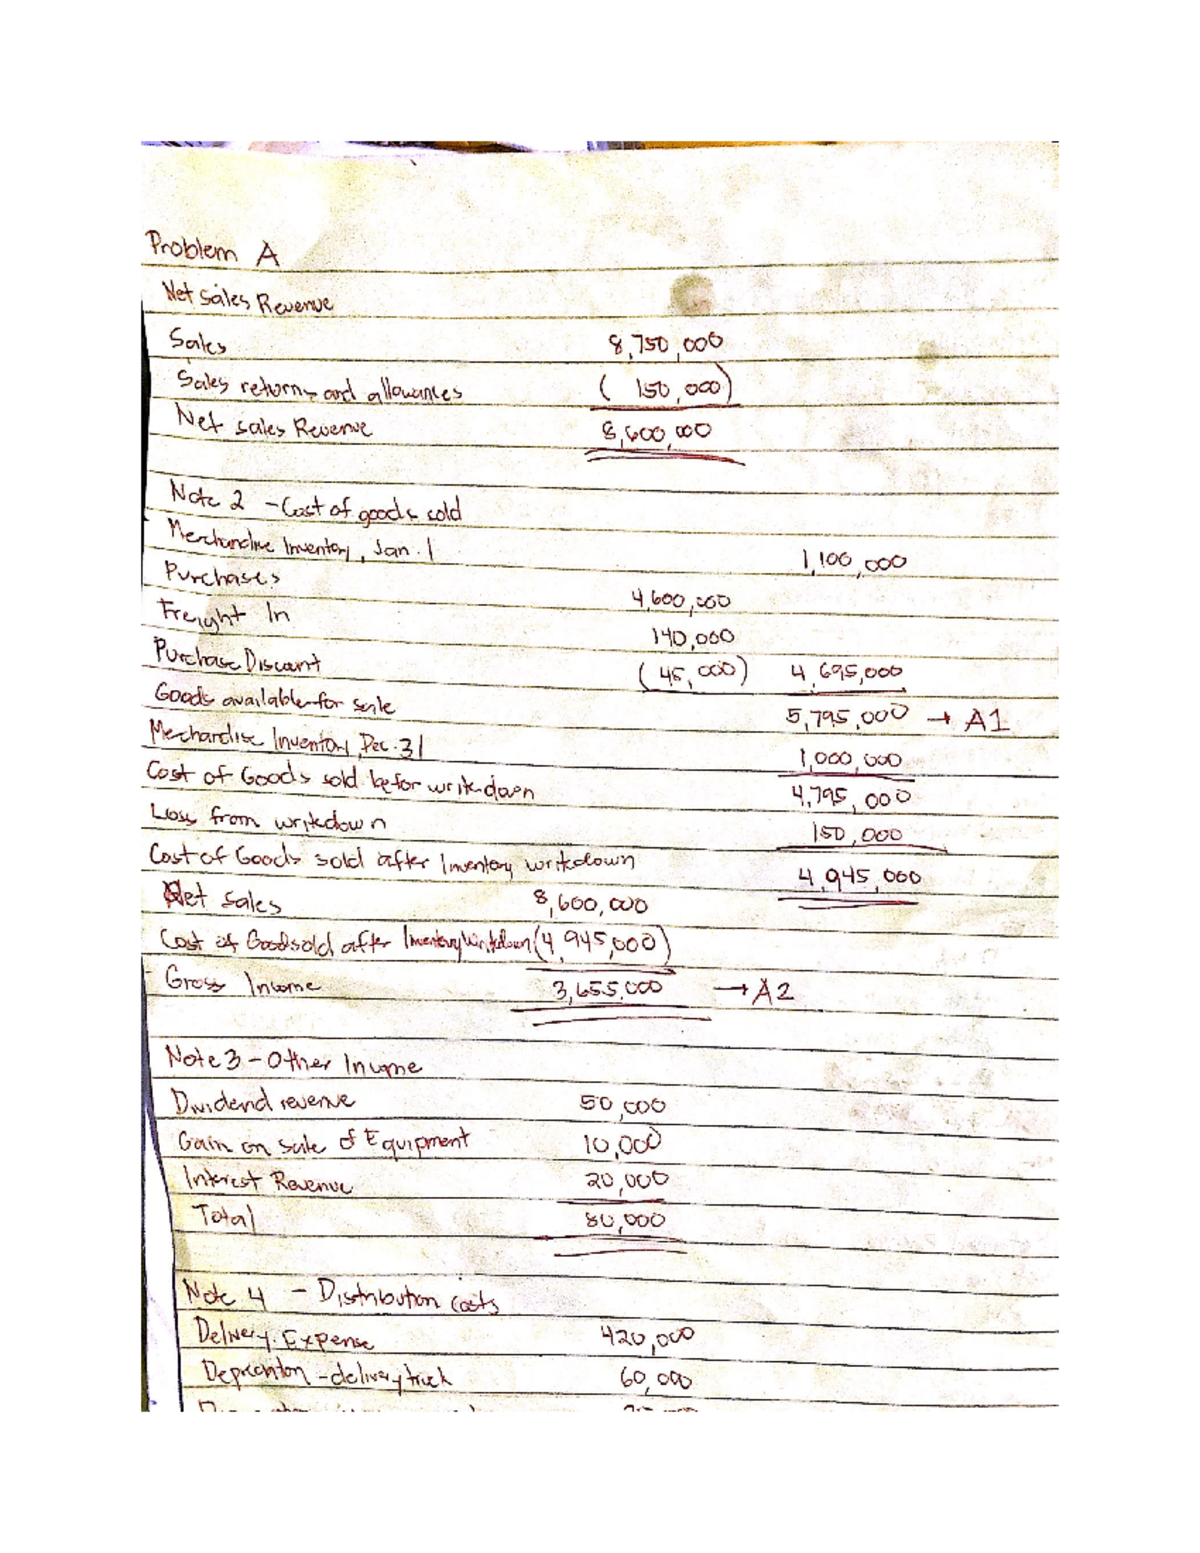 Problem A
Net Sales Revenue
Sales 8,750,000
Sales returns and allowances ( 150,000)
Net sales Revenue 8,600,000
Note 2 - Cost of goods sold
Merchandise Inventory, Jan. 1 1,100,000
Purchases 4,600,000
Freight In 140,000
Purchase Discount (45,000) 4,695,000
Goods available for sale 5,795,000 → A1
Merchandise Inventory, Dec. 31 1,000,000
Cost of Goods sold befor writedown 4,795,000
Loss from writedown 150,000
Cost of Goods sold after Inventory writedown 4,945,000
Net Sales 8,600,000
Cost of Goodsold after Inventory Writedown (4,945,000)
Gross Income 3,655,000 → A2
Note 3 - Other Income
Dividend revenue 50,000
Gain on sale of Equipment 10,000
Interest Revenue 20,000
Total 80,000
Note 4 - Distribution costs
Delivery Expense 420,000
- delivery truck 60,000